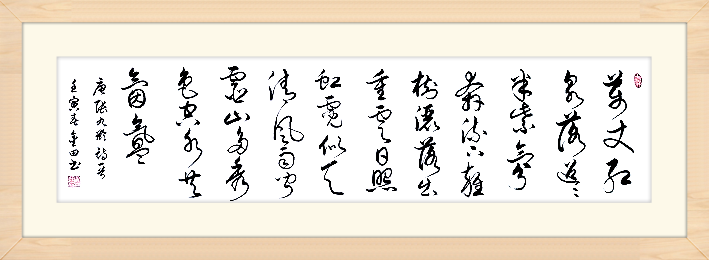 萬丈紅
泉落迢迢
半紫氛
奔流下雜
樹灑落出
重雲日照
虹霓似天
清風雨聞
靈山多秀
色空水共
氤氳
唐張九齡詩
壬寅春金田書